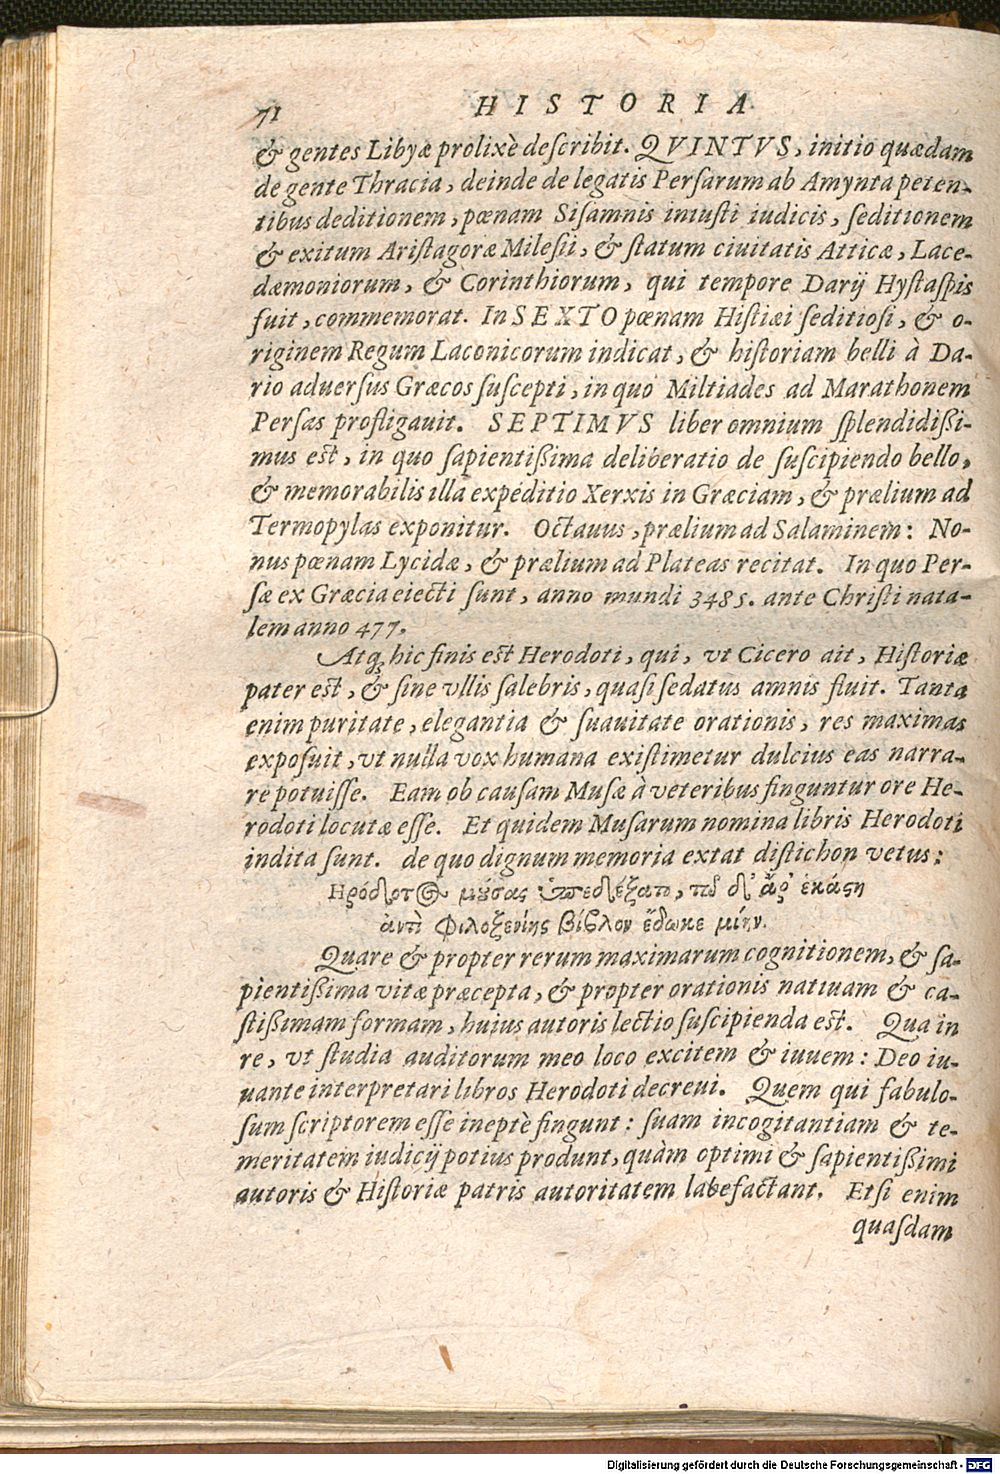 71 HISTORIA
& gentes Libyæ prolixè deſcribit. QVINTVS, initio quædam
de gente Thracia, deinde de legatis Perſarum ab Amynta peten-
tibus deditionem, pœnam Siſamnis iniuſti iudicis, ſeditionem
& exitum Ariſtagoræ Mileſii, & ſtatum ciuitatis Atticæ, Lace-
dæmoniorum, & Corinthiorum, qui tempore Darij Hyſtaſpis
fuit, commemorat. In SEXTO pœnam Hiſtiæi ſeditioſi, & o-
riginem Regum Laconicorum indicat, & hiſtoriam belli à Da-
rio aduerſus Græcos ſuſcepti, in quo Miltiades ad Marathonem
Perſas profligauit. SEPTIMVS liber omnium ſplendidißi-
mus eſt, in quo ſapientißima deliberatio de ſuſcipiendo bello,
& memorabilis illa expeditio Xerxis in Græciam, & prælium ad
Termopylas exponitur. Octauus, prælium ad Salaminem: No-
nus pœnam Lycidæ, & prælium ad Plateas recitat. In quo Per-
ſæ ex Græcia eiecti ſunt, anno mundi 3485. ante Chriſti nata-
lem anno 477.
Atq; hic finis eſt Herodoti, qui, vt Cicero ait, Hiſtoriæ
pater eſt, & ſine vllis ſalebris, quaſi ſedatus amnis fluit. Tanta
enim puritate, elegantia & ſuauitate orationis, res maximas
expoſuit, vt nulla vox humana exiſtimetur dulcius eas narra-
re potuiſſe. Eam ob cauſam Muſæ à veteribus finguntur ore He-
rodoti locutæ eſſe. Et quidem Muſarum nomina libris Herodoti
indita ſunt. de quo dignum memoria extat diſtichon vetus:
Ηρόδοτος μούσας ὑπεδέξατο, τῷ δ' ἄρ' ἑκάστη
ἀντὶ φιλοξενίης βίβλον ἔδωκε μίην.
Quare & propter rerum maximarum cognitionem, & ſa-
pientißima vitæ præcepta, & propter orationis natiuam & ca-
ſtißimam formam, huius autoris lectio ſuſcipienda eſt. Qua in
re, vt ſtudia auditorum meo loco excitem & iuuem: Deo iu-
uante interpretari libros Herodoti decreui. Quem qui fabulo-
ſum ſcriptorem eſſe ineptè fingunt: ſuam incogitantiam & te-
meritatem iudicij potius produnt, quàm optimi & ſapientißimi
autoris & Hiſtoriæ patris autoritatem labefactant. Etſi enim
quaſdam
Digitalisierung gefördert durch die Deutsche Forschungsgemeinschaft - DFG